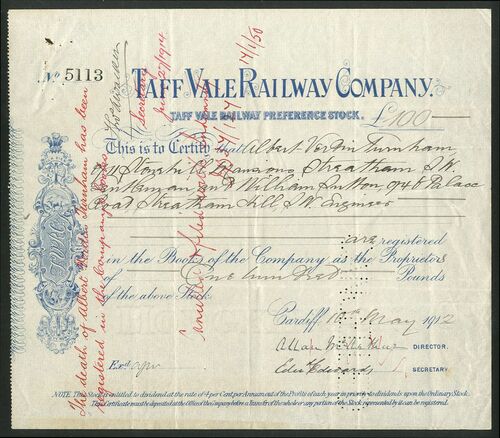 No. 5113
TAFF VALE RAILWAY COMPANY.
TAFF VALE RAILWAY PREFERENCE STOCK. £100
This is to Certify that Albert Verdin Turnham
Mansions Streatham S.W.
Gentleman and William Sutton of Palace
Road Streatham Hill S.W. Engineer
are registered
in the Books of the Company as the Proprietors
of One hundred Pounds
of the above Stock.
Cardiff, 10th May 1912
DIRECTOR.
Edwards SECRETARY
Exd.
NOTE. This Stock is entitled to dividend at the rate of 4 per Cent per Annum out of the Profits of each year in priority to dividends upon the Ordinary Stock.
This Certificate must be deposited at the Office of the Company before a Transfer of the whole or any portion of the Stock represented by it can be registered.
The death of Albert Verdin Turnham has been
registered in the Company's Books
Secretary
July 27/1914
14/1/50